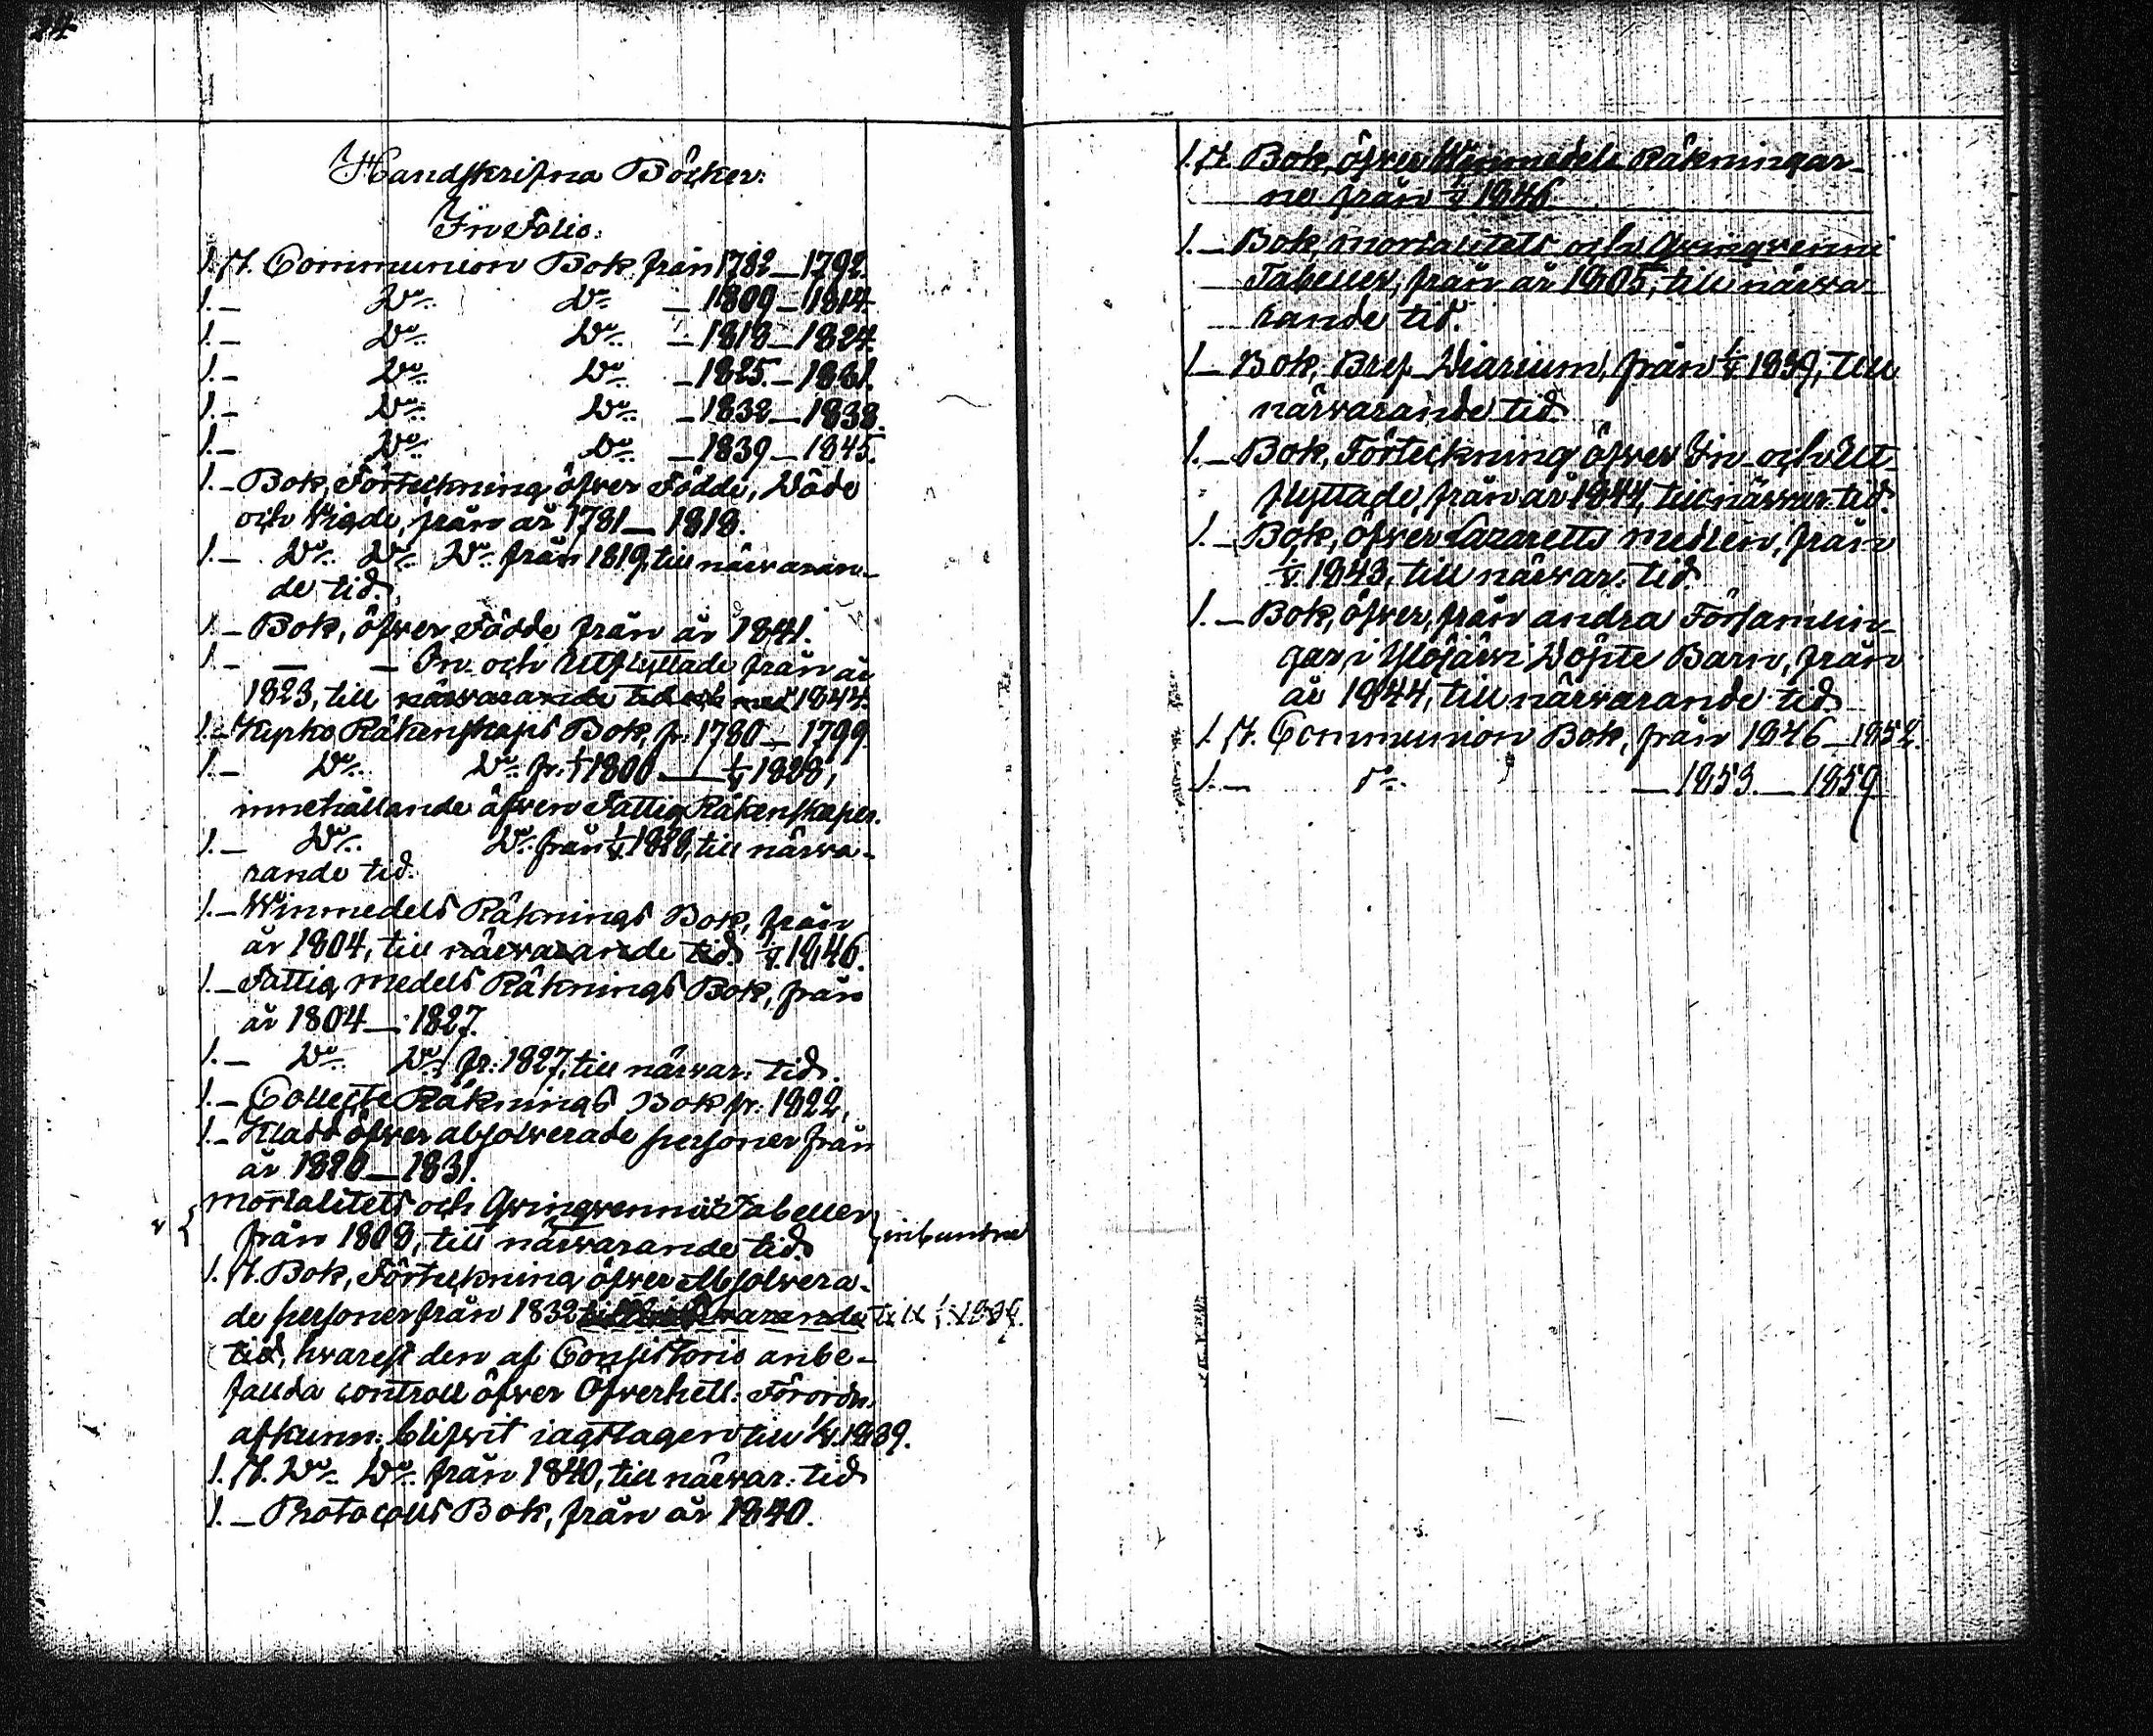 24
Handskrifna Böcker:
In Folio:
1. st. Communion Bok från 1782 — 1792.
1. — Do Do — 1809 — 1817.
1. — Do Do — 1818 — 1824.
1. — Do Do — 1825. — 1831.
1. — Do Do — 1832 — 1838.
1. — Do Do — 1839 — 1845.
1. — Bok, Förteckning öfver Födde, Döde
och Vigde, från år 1781 — 1818.
1. — Do Do Do från 1819, till närvaran-
de tid.
1. — Bok, öfver Födde från år 1841.
1. — — — In och Utflyttade från år
1823, till närvarande tid och med 1844.
1. — Kyrko Räkenskaps Bok, fr. 1780 — 1799
1. — Do Do fr. 1/1 1800 — 1/5 1828,
innehållande äfven Fattig Räkenskaper.
1. — Do Do från 1/5 1828, till närva-
rande tid.
1. — Winmedels Räknings Bok, från
år 1804, till närvarande tid. 1/5 1846.
1. — Fattig medels Räknings Bok, från
år 1804 — 1827.
1. — Do Do fr. 1827, till närvar. tid.
1. — Collecte Räknings Bok fr. 1822.
1. — Kladd öfver absolverade personer från
år 1820 — 1831.
Mortalitets och Qvinqvennii Tabeller
från 1808, till närvarande tid. } inbundne
1. st. Bok, Förteckning öfver Absolvera-
de personer från 1832 till närvarande till
tid, hvarest den af Consistorio anbe-
fallda controll öfver Öfverhetl. Förordn.
afkunn: blifvit iagttagen till 1/5 1839.
1. st. Do Do från 1840, till närvar. tid
1. — Protocolls Bok, från år 1840.
1. st. Bok, öfver Winmedels Räkningar-
ne från 1/5 1846
1. — Bok, Mortalitets och Qvinqvenni
Tabeller, från år 1805, till närva-
rande tid.
1. — Bok, Bref Diarium, från 1/5 1839, till
närvarande tid.
1. — Bok, Förteckning öfver In och Ut-
flyttade, från år 1844, till närvar. tid.
1. — Bok, öfver Lazaretts medlen, från
1/5 1843, till närvar. tid
1. — Bok, öfver, från andra Församlin-
gar, i Ylöjärvi Döpte Barn, från
år 1844, till närvarande tid
1. st. Communion Bok, från 1846 — 1852.
1. — do — 1853. — 1859